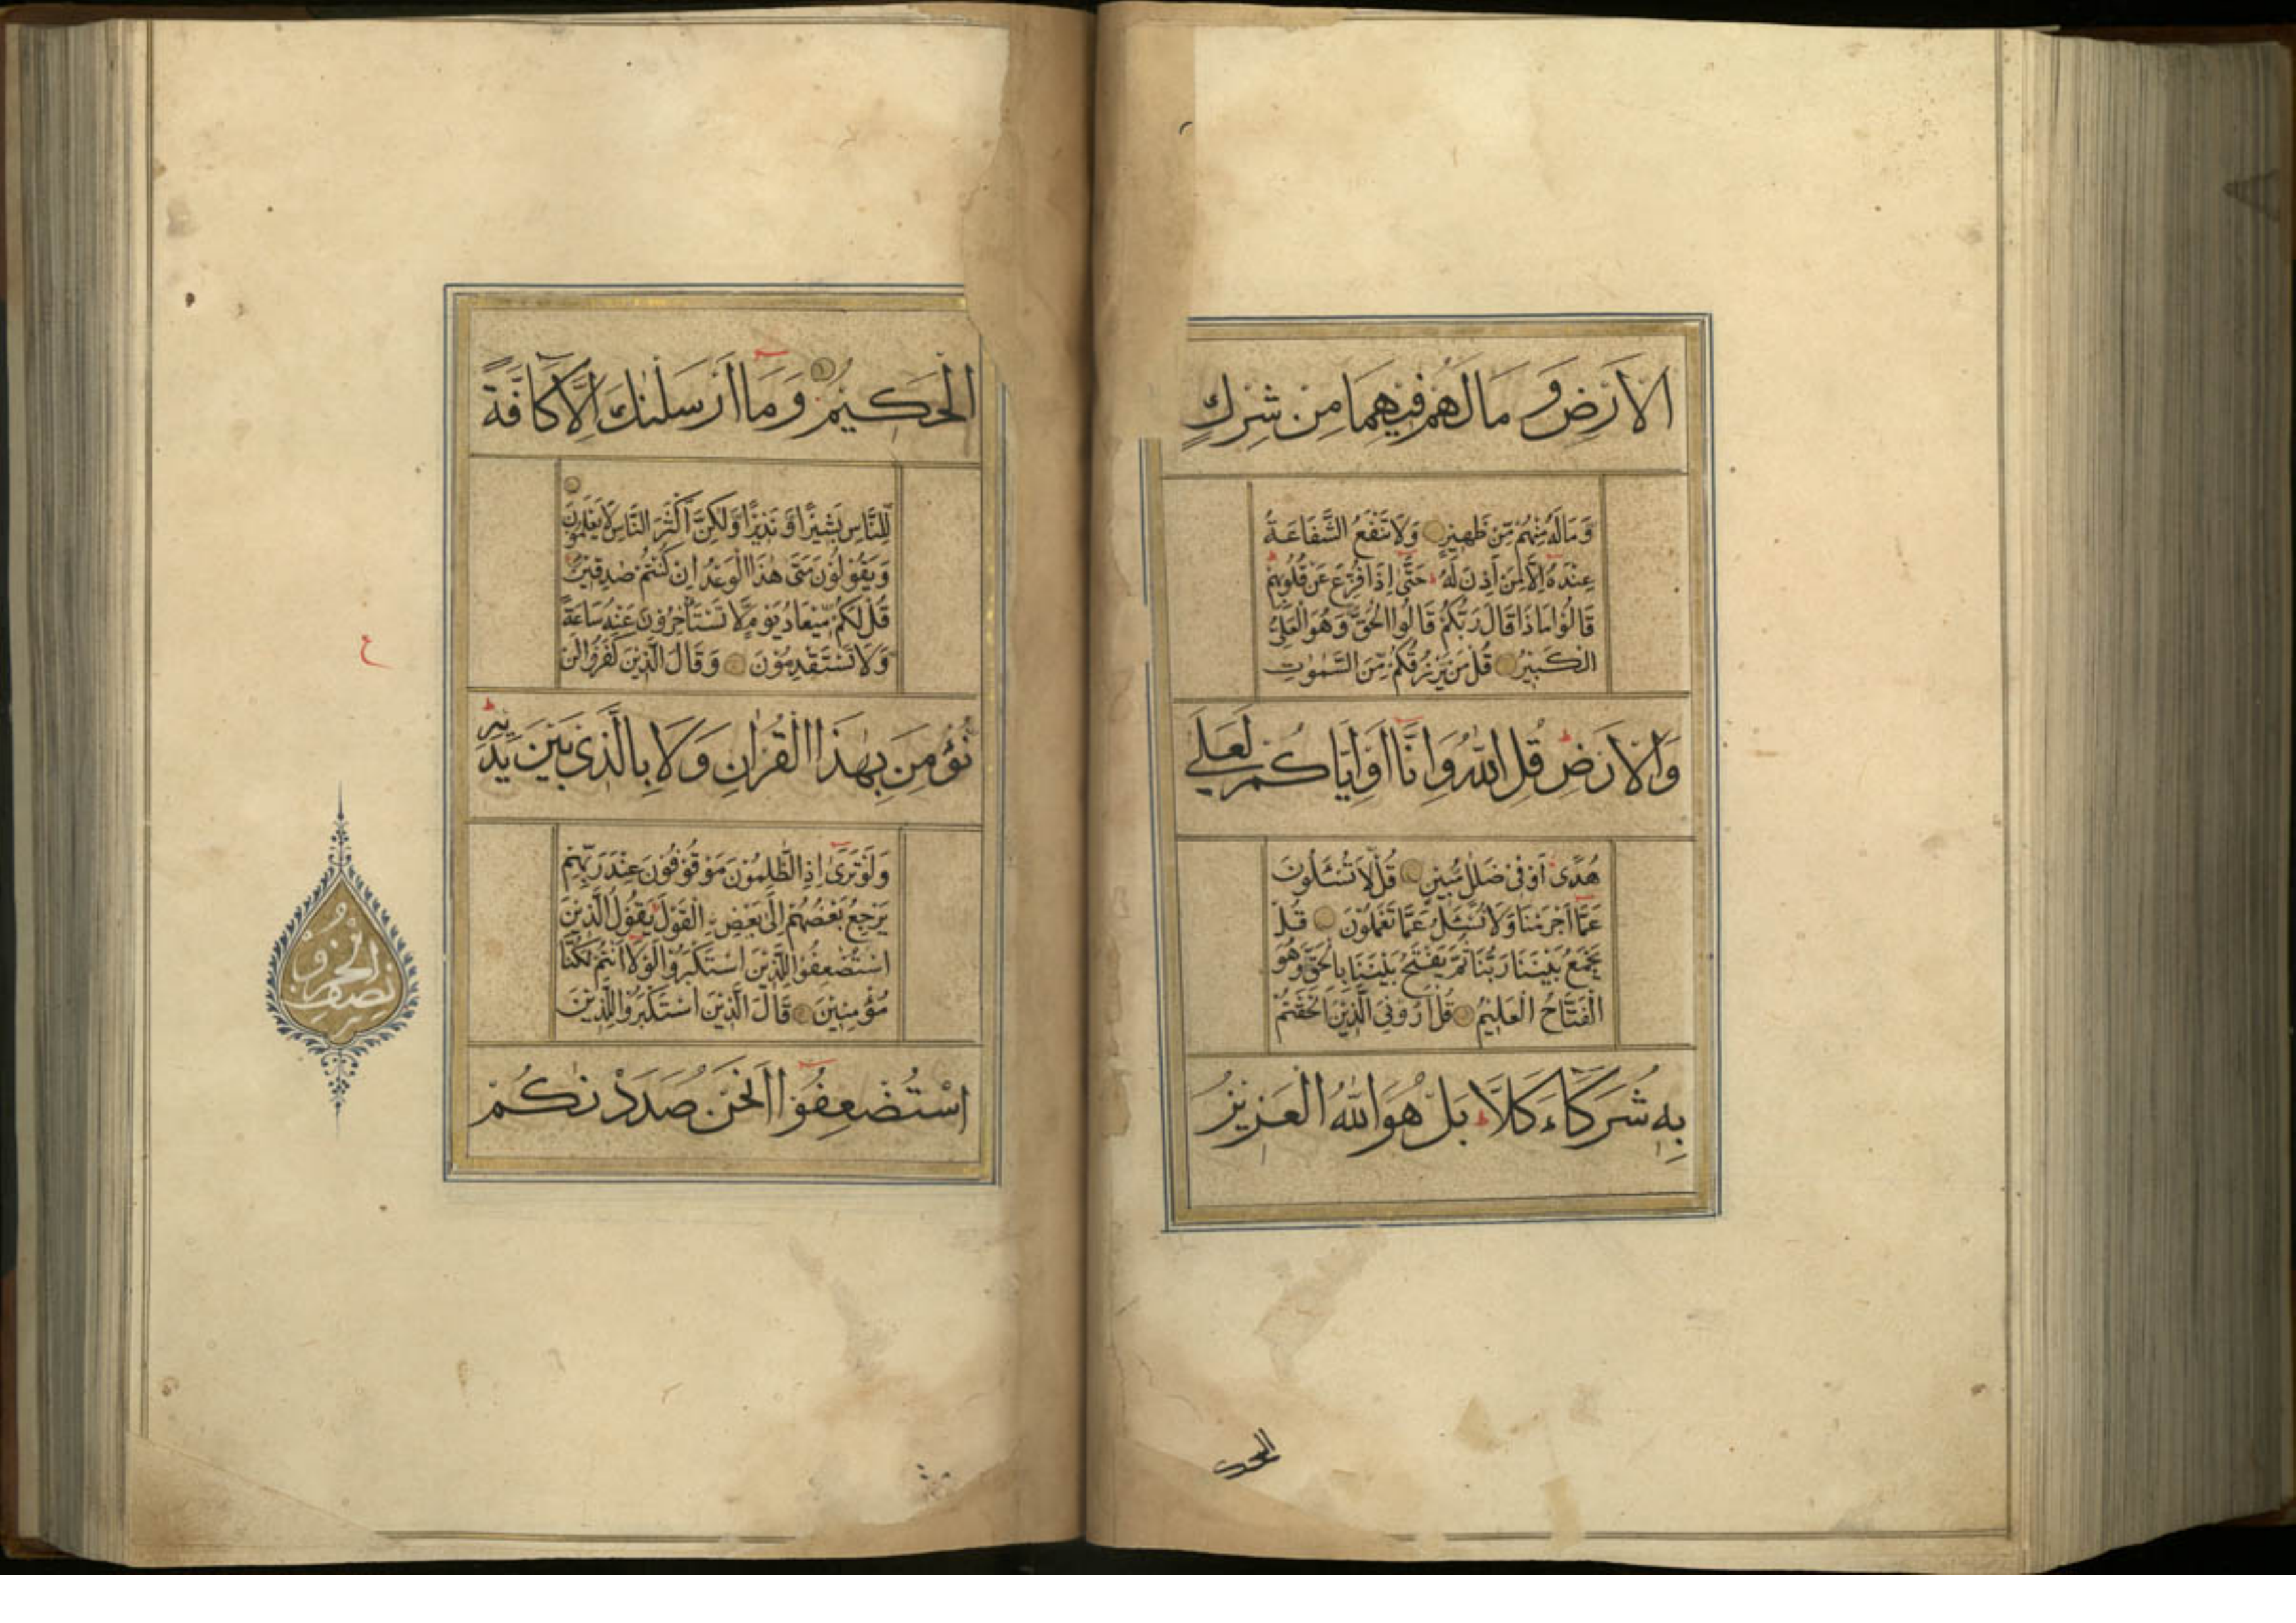 الْاَرْضِ وَمَا لَهُمْ فِيهِمَا مِنْ شِرْكٍ
وَمَا لَهُ مِنْهُمْ مِّنْ ظَهِيْرٍ وَلَا تَنْفَعُ الشَّفَاعَةُ
عِنْدَهُ اِلَّا لِمَنْ اَذِنَ لَهُ حَتَّى اِذَا فُزِّعَ عَنْ قُلُوْبِهِمْ
قَالُوْا مَاذَا قَالَ رَبُّكُمْ قَالُوا الْحَقَّ وَهُوَ الْعَلِيُّ
الْكَبِيْرُ قُلْ مَنْ يَّرْزُقُكُمْ مِّنَ السَّمٰوٰتِ
وَالْاَرْضِ قُلِ اللّٰهُ وَاِنَّا اَوْ اِيَّاكُمْ لَعَلٰى
هُدًى اَوْ فِىْ ضَلٰلٍ مُّبِيْنٍ قُلْ لَّا تُسْئَلُوْنَ
عَمَّا اَجْرَمْنَا وَلَا نُسْئَلُ عَمَّا تَعْمَلُوْنَ قُلْ
يَجْمَعُ بَيْنَنَا رَبُّنَا ثُمَّ يَفْتَحُ بَيْنَنَا بِالْحَقِّ وَهُوَ
الْفَتَّاحُ الْعَلِيْمُ قُلْ اَرُوْنِيَ الَّذِيْنَ اَلْحَقْتُمْ
بِهٖ شُرَكَاءَ كَلَّا بَلْ هُوَ اللّٰهُ الْعَزِيْزُ
الحكيم
الْحَكِيْمُ وَمَا اَرْسَلْنٰكَ اِلَّا كَافَّةً
لِّلنَّاسِ بَشِيْرًا وَّنَذِيْرًا وَّلٰكِنَّ اَكْثَرَ النَّاسِ لَا يَعْلَمُوْنَ
وَيَقُوْلُوْنَ مَتٰى هٰذَا الْوَعْدُ اِنْ كُنْتُمْ صٰدِقِيْنَ
قُلْ لَكُمْ مِّيْعَادُ يَوْمٍ لَّا تَسْتَأْخِرُوْنَ عَنْهُ سَاعَةً
وَلَا تَسْتَقْدِمُوْنَ وَقَالَ الَّذِيْنَ كَفَرُوْا لَنْ
نُؤْمِنَ بِهٰذَا الْقُرْاٰنِ وَلَا بِالَّذِيْ بَيْنَ يَدَيْهِ
وَلَوْ تَرٰى اِذِ الظّٰلِمُوْنَ مَوْقُوْفُوْنَ عِنْدَ رَبِّهِمْ
يَرْجِعُ بَعْضُهُمْ اِلٰى بَعْضِ ِۨالْقَوْلَ يَقُوْلُ الَّذِيْنَ
اسْتُضْعِفُوْا لِلَّذِيْنَ اسْتَكْبَرُوْا لَوْلَا اَنْتُمْ لَكُنَّا
مُؤْمِنِيْنَ قَالَ الَّذِيْنَ اسْتَكْبَرُوْا لِلَّذِيْنَ
اسْتُضْعِفُوْا اَنَحْنُ صَدَدْنٰكُمْ
ع
نصف الحزب